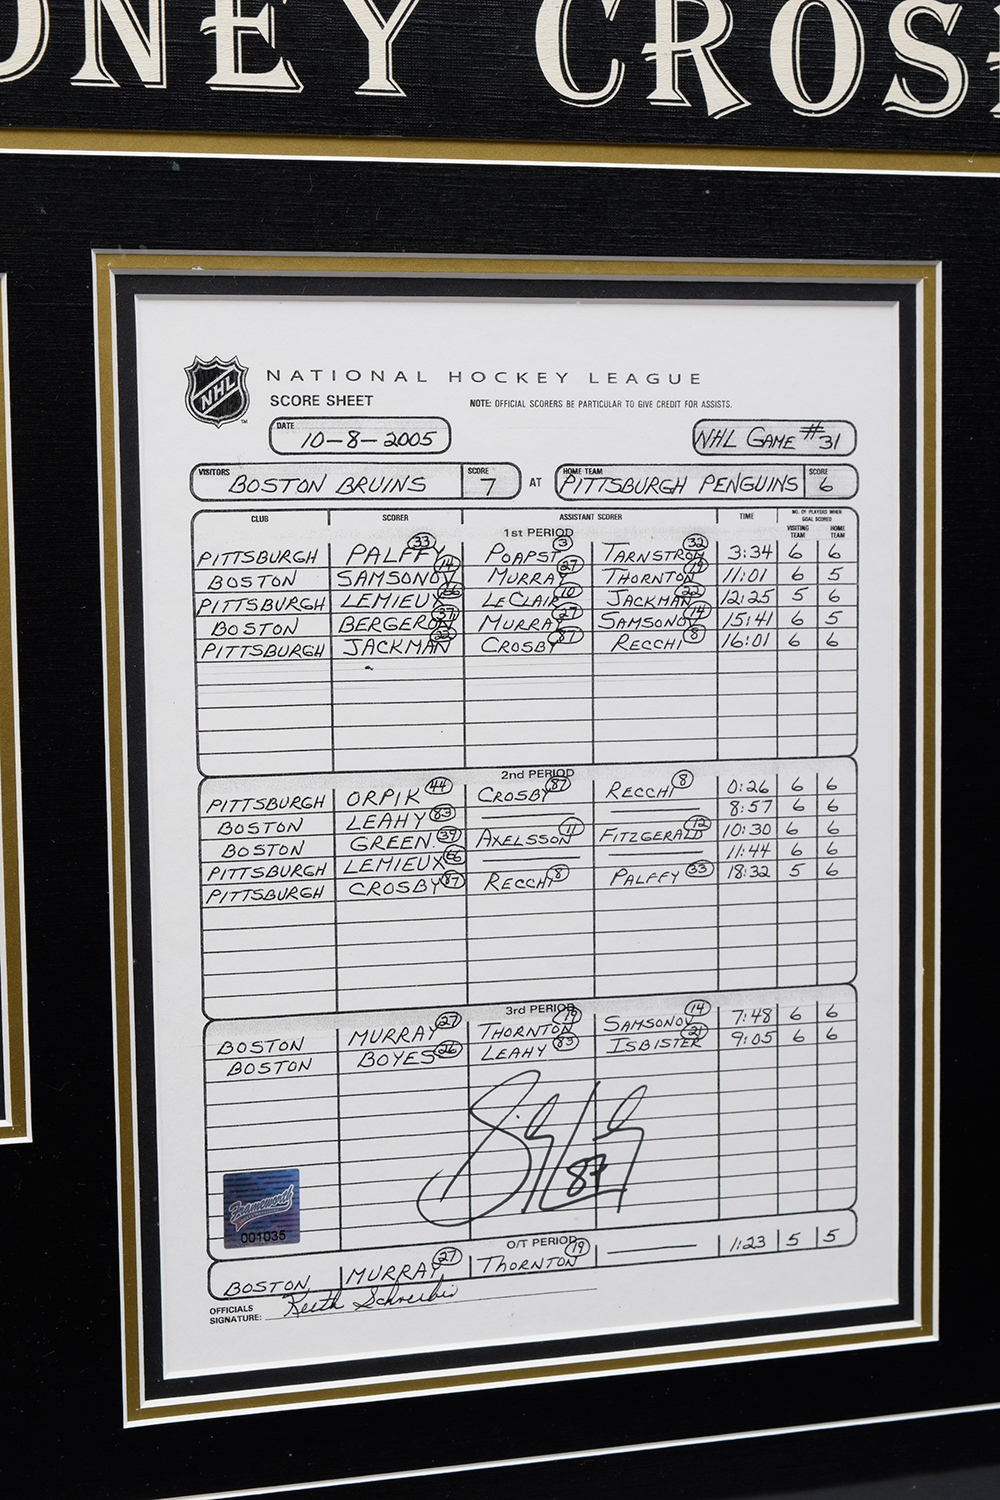 DNEY CROS
NHL
NATIONAL HOCKEY LEAGUE
SCORE SHEET
NOTE: OFFICIAL SCORERS BE PARTICULAR TO GIVE CREDIT FOR ASSISTS.
DATE 10-8-2005 NHL GAME #31
VISITORS BOSTON BRUINS SCORE 7 AT HOME TEAM PITTSBURGH PENGUINS SCORE 6
CLUB SCORER ASSISTANT SCORER TIME NO. OF PLAYERS WHEN GOAL SCORED
VISITING TEAM HOME TEAM
1st PERIOD
PITTSBURGH PALFFY 33 POAPST 3 TARNSTROM 32 3:34 6 6
BOSTON SAMSONOV 14 MURRAY 27 THORNTON 19 11:01 6 5
PITTSBURGH LEMIEUX 66 LECLAIR 10 JACKMAN 22 12:25 5 6
BOSTON BERGERON 37 MURRAY 27 SAMSONOV 14 15:41 6 5
PITTSBURGH JACKMAN 22 CROSBY 87 RECCHI 8 16:01 6 6
2nd PERIOD
PITTSBURGH ORPIK 44 CROSBY 87 RECCHI 8 0:26 6 6
BOSTON LEAHY 83 8:57 6 6
BOSTON GREEN 39 AXELSSON 11 FITZGERALD 12 10:30 6 6
PITTSBURGH LEMIEUX 66 11:44 6 6
PITTSBURGH CROSBY 87 RECCHI 8 PALFFY 33 18:32 5 6
3rd PERIOD
BOSTON MURRAY 27 THORNTON 19 SAMSONOV 14 7:48 6 6
BOSTON BOYES 26 LEAHY 83 ISBISTER 21 9:05 6 6
87
Frameworth
001035
O/T PERIOD
BOSTON MURRAY 27 THORNTON 19 1:23 5 5
OFFICIALS SIGNATURE: Keith Schreibis